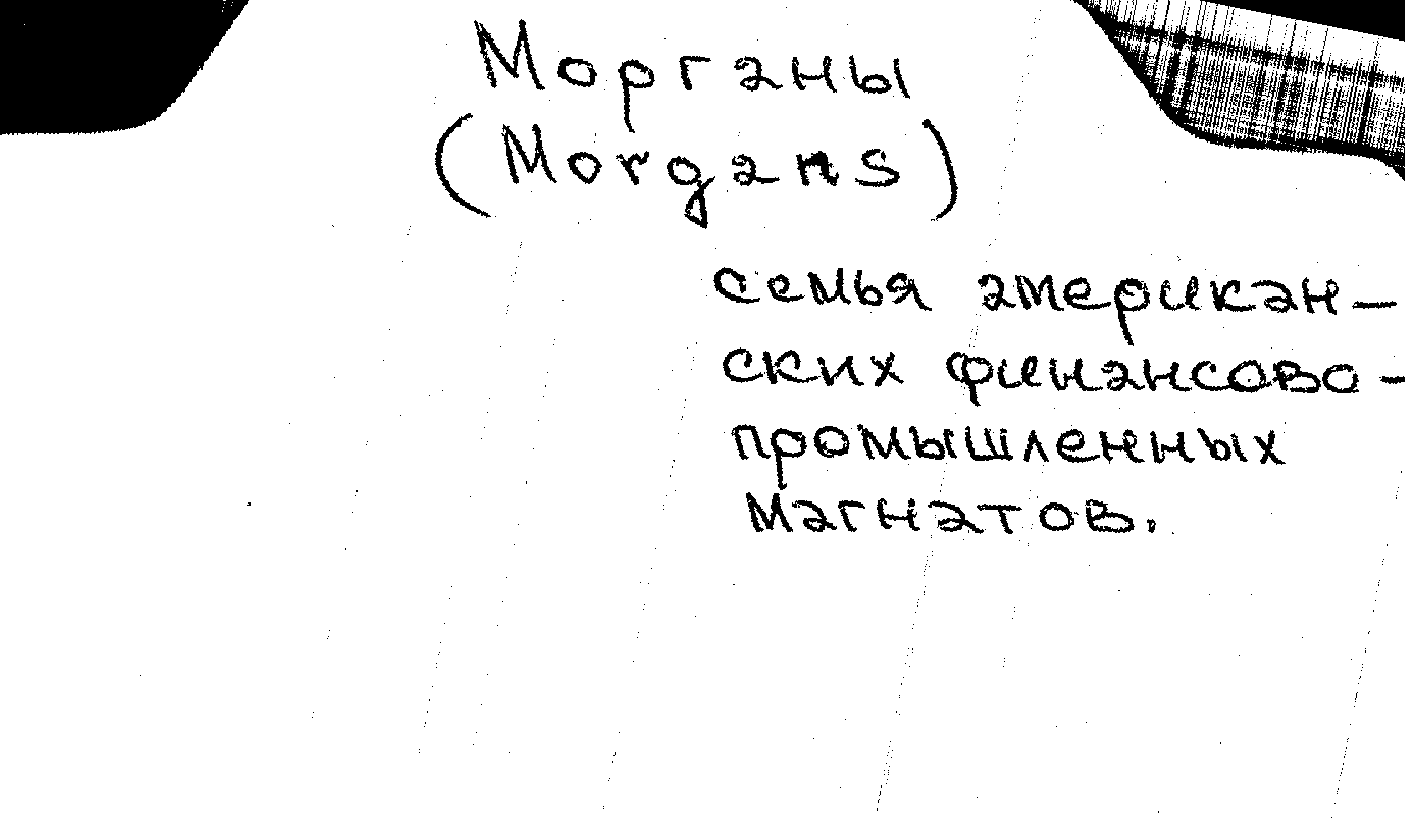 Морганы
(Morgans)
семья американ-
ских финансово-
промышленных
магнатов.